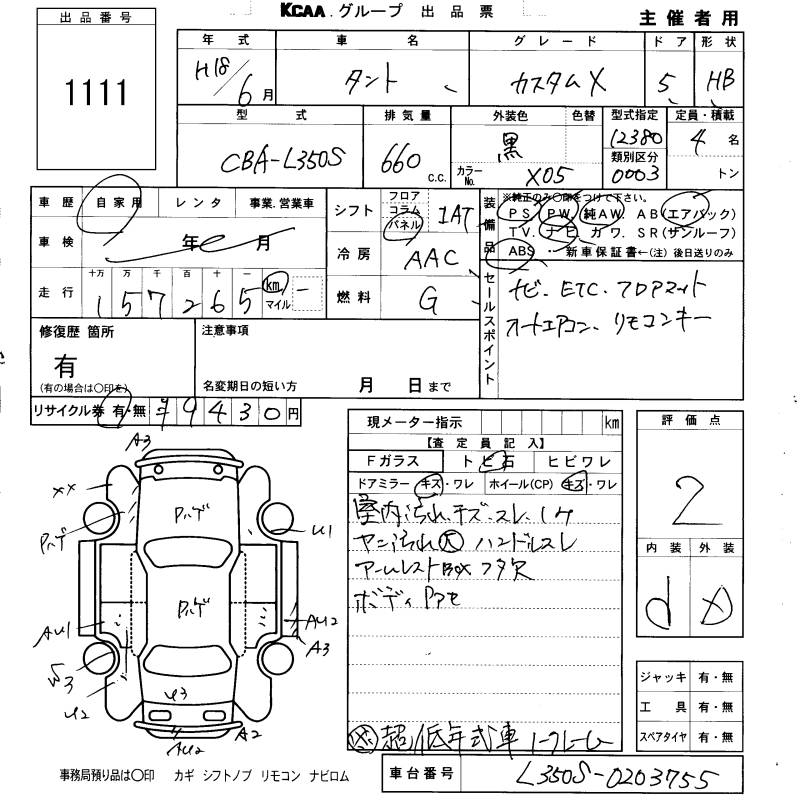 KCAA.グループ 出品票
主催者用
出品番号
1111
年式 車名 グレード ドア 形状
H18/6月 タント カスタムX 5 HB
型式 排気量 外装色 色替 型式指定 定員・積載
CBA-L350S 660 c.c. 黒 カラーNo. X05 12380 4名
類別区分 0003 トン
車歴 自家用 レンタ 事業.営業車
シフト フロア コラム パネル 1AT
装備品 ※純正のみ○印をつけて下さい。
PS. PW. 純AW. AB(エアバック)
TV. ナビ. カワ. SR(サンルーフ)
ABS 新車保証書←(注) 後日送りのみ
車検 年 月
冷房 AAC
走行 十万 万 千 百 十 一
157265 km マイル
燃料 G
セールスポイント
ナビ. ETC. フロアマット
オートエアコン、リモコンキー
修復歴 箇所
有
(有の場合は○印を)
注意事項
名変期日の短い方 月 日まで
リサイクル券 有・無 ¥9430円
現メーター指示 km
【査定員記入】
Fガラス トビ石 ヒビワレ
ドアミラー キズ・ワレ ホイール(CP) キズ・ワレ
室内汚れ.キズ.スレ.コゲ
ヤニ汚れ大 ハンドルスレ
アームレストBOXフタ欠
ボディ
超低年式車 ノークレーム
評価点
2
内装 外装
d
ジャッキ 有・無
工具 有・無
スペアタイヤ 有・無
A3
XX
ハゲ
ハゲ
U1
ハゲ
AU1
AU2
A3
W3
U2
U3
AU2
A2
事務局預り品は○印 カギ シフトノブ リモコン ナビロム
車台番号 L350S-0203755